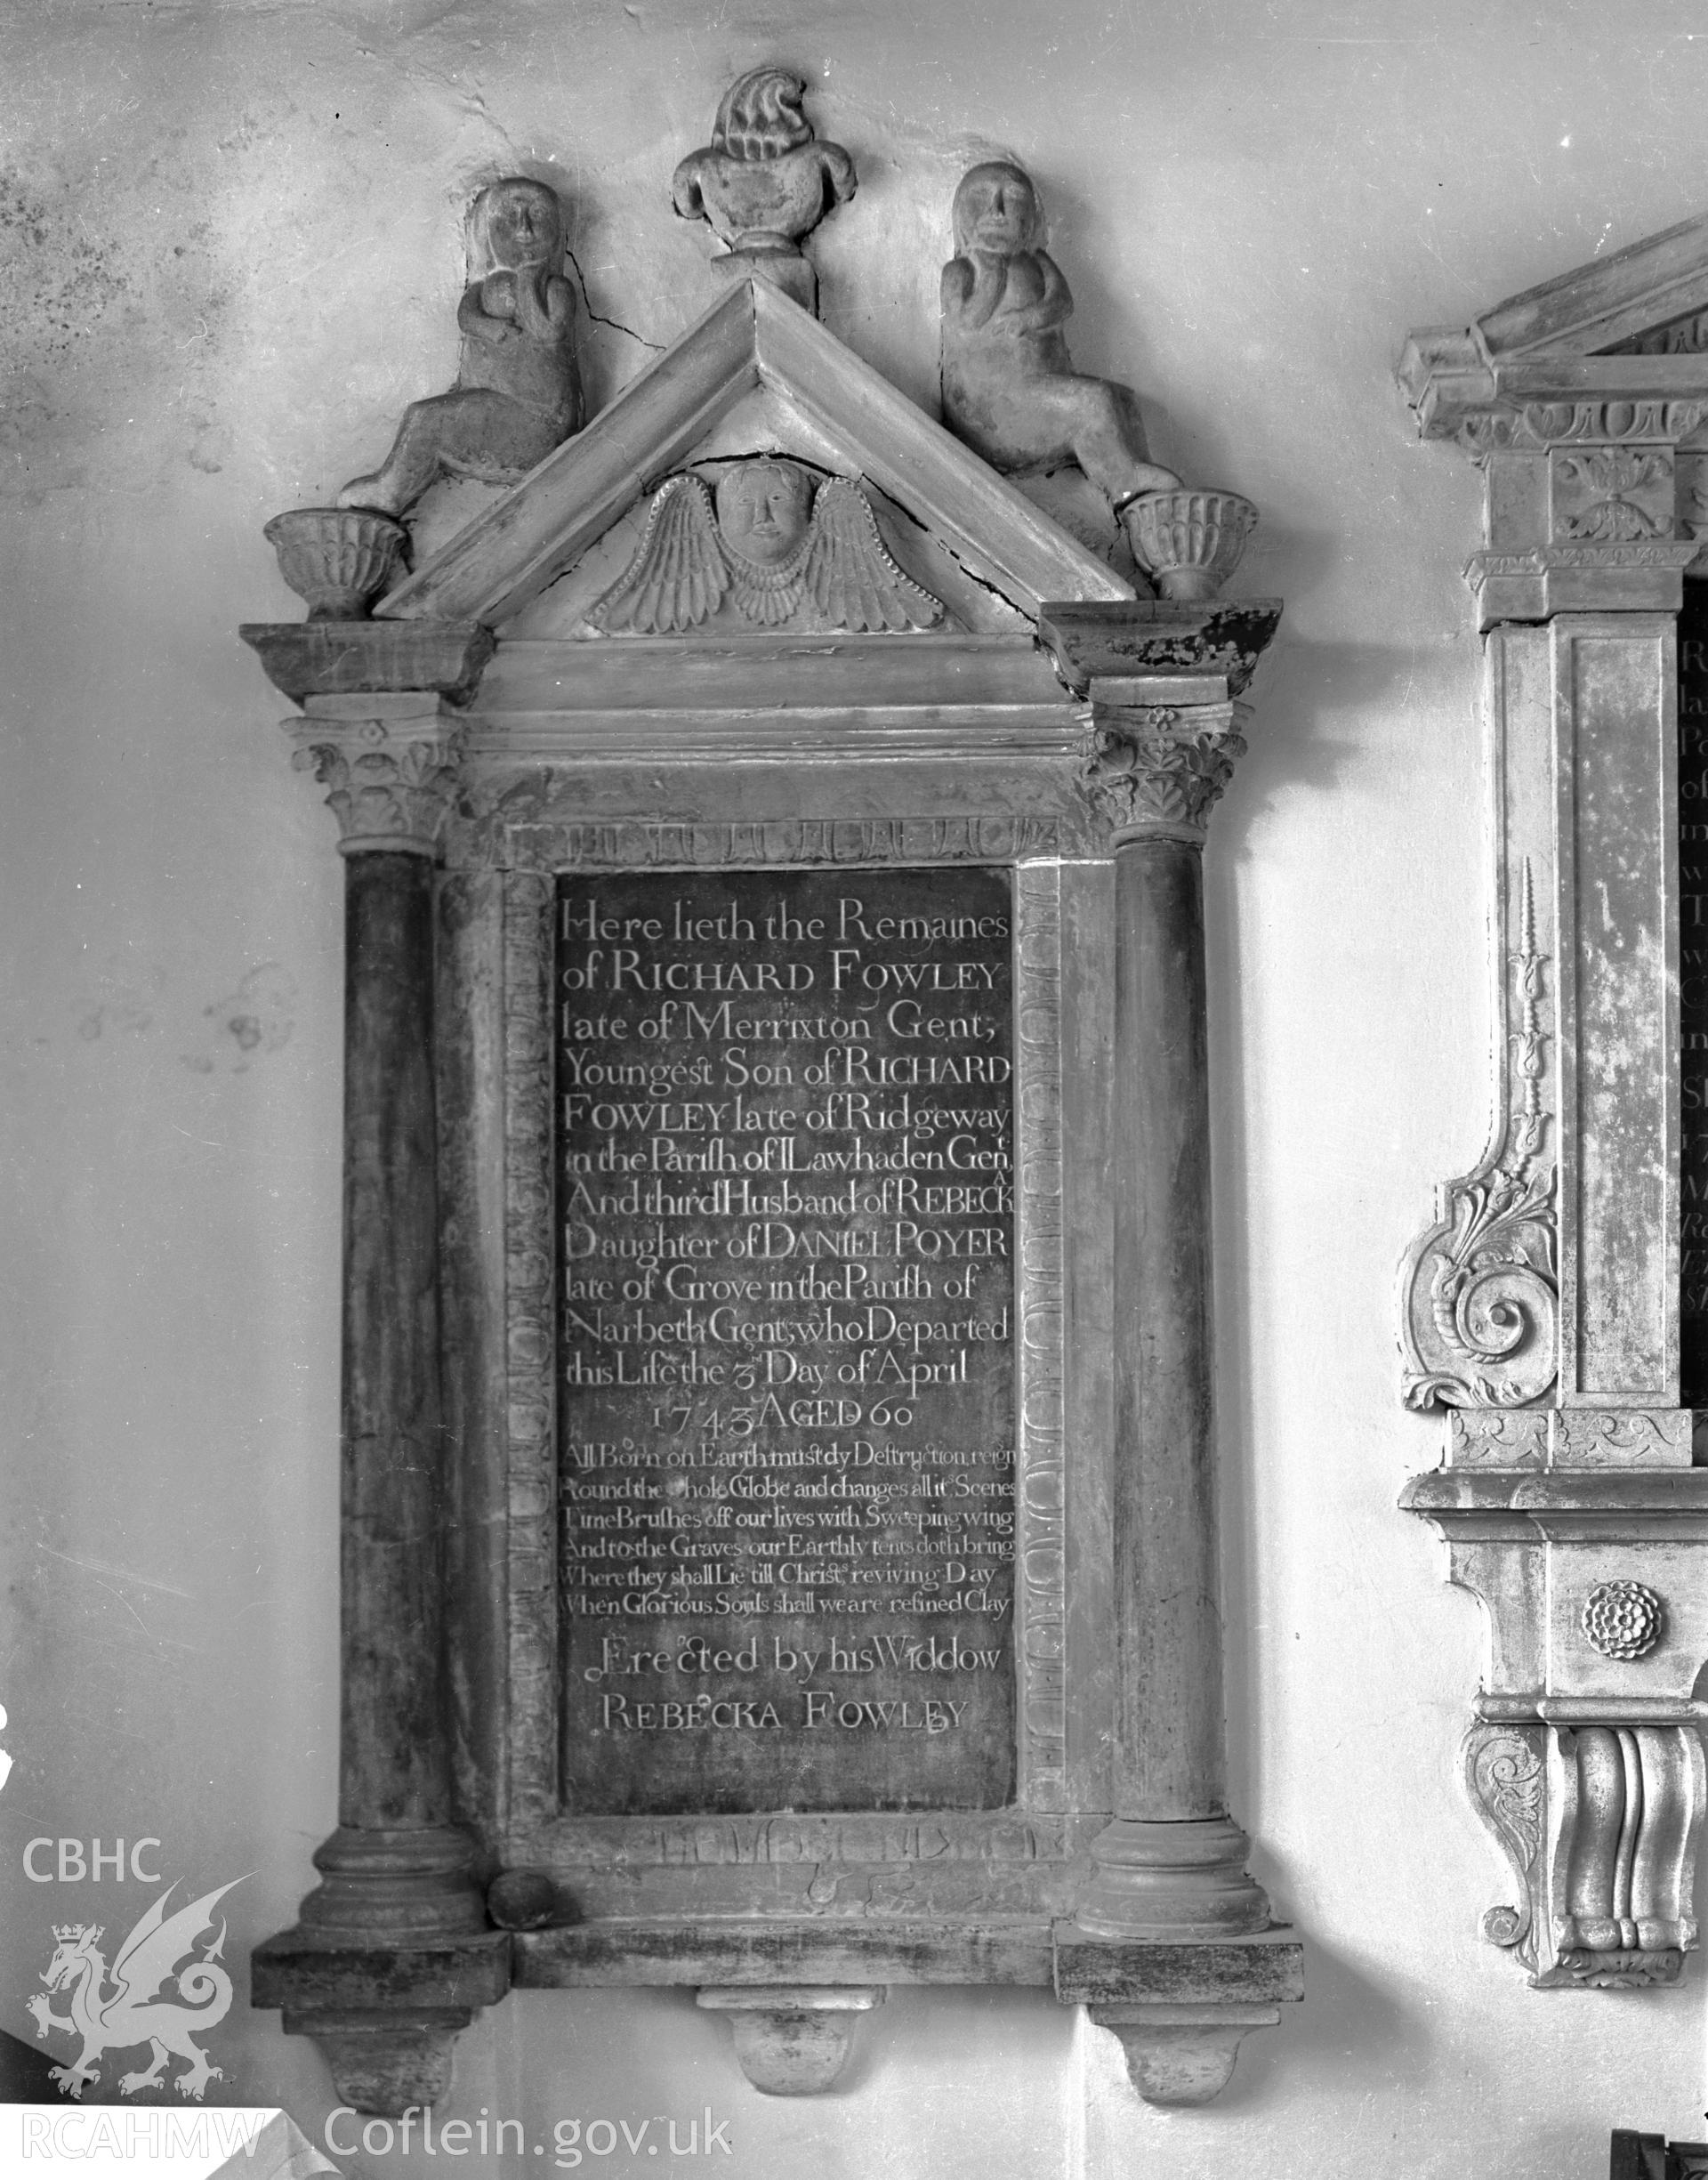 Here lieth the Remaines
of RICHARD FOWLEY
late of Merrixton Gent;
Youngest Son of RICHARD
FOWLEY late of Ridgeway
in the Parish of Lawhaden Gent,
And third Husband of REBECKA
Daughter of DANIEL POYER
late of Grove in the Parish of
Narbeth Gent; who Departed
this Life the 3d Day of April
1743 AGED 60
All Born on Earth must dy Destruction reign
Round the whole Globe and changes all its Scenes
Time Brushes off our lives with Sweeping wing
And to the Graves our Earthly tents doth bring
Where they shall Lie till Christs reviving Day
When Glorious Souls shall weare refined Clay
Erected by his Widdow
REBECKA FOWLEY
CBHC
RCAHMW Coflein.gov.uk